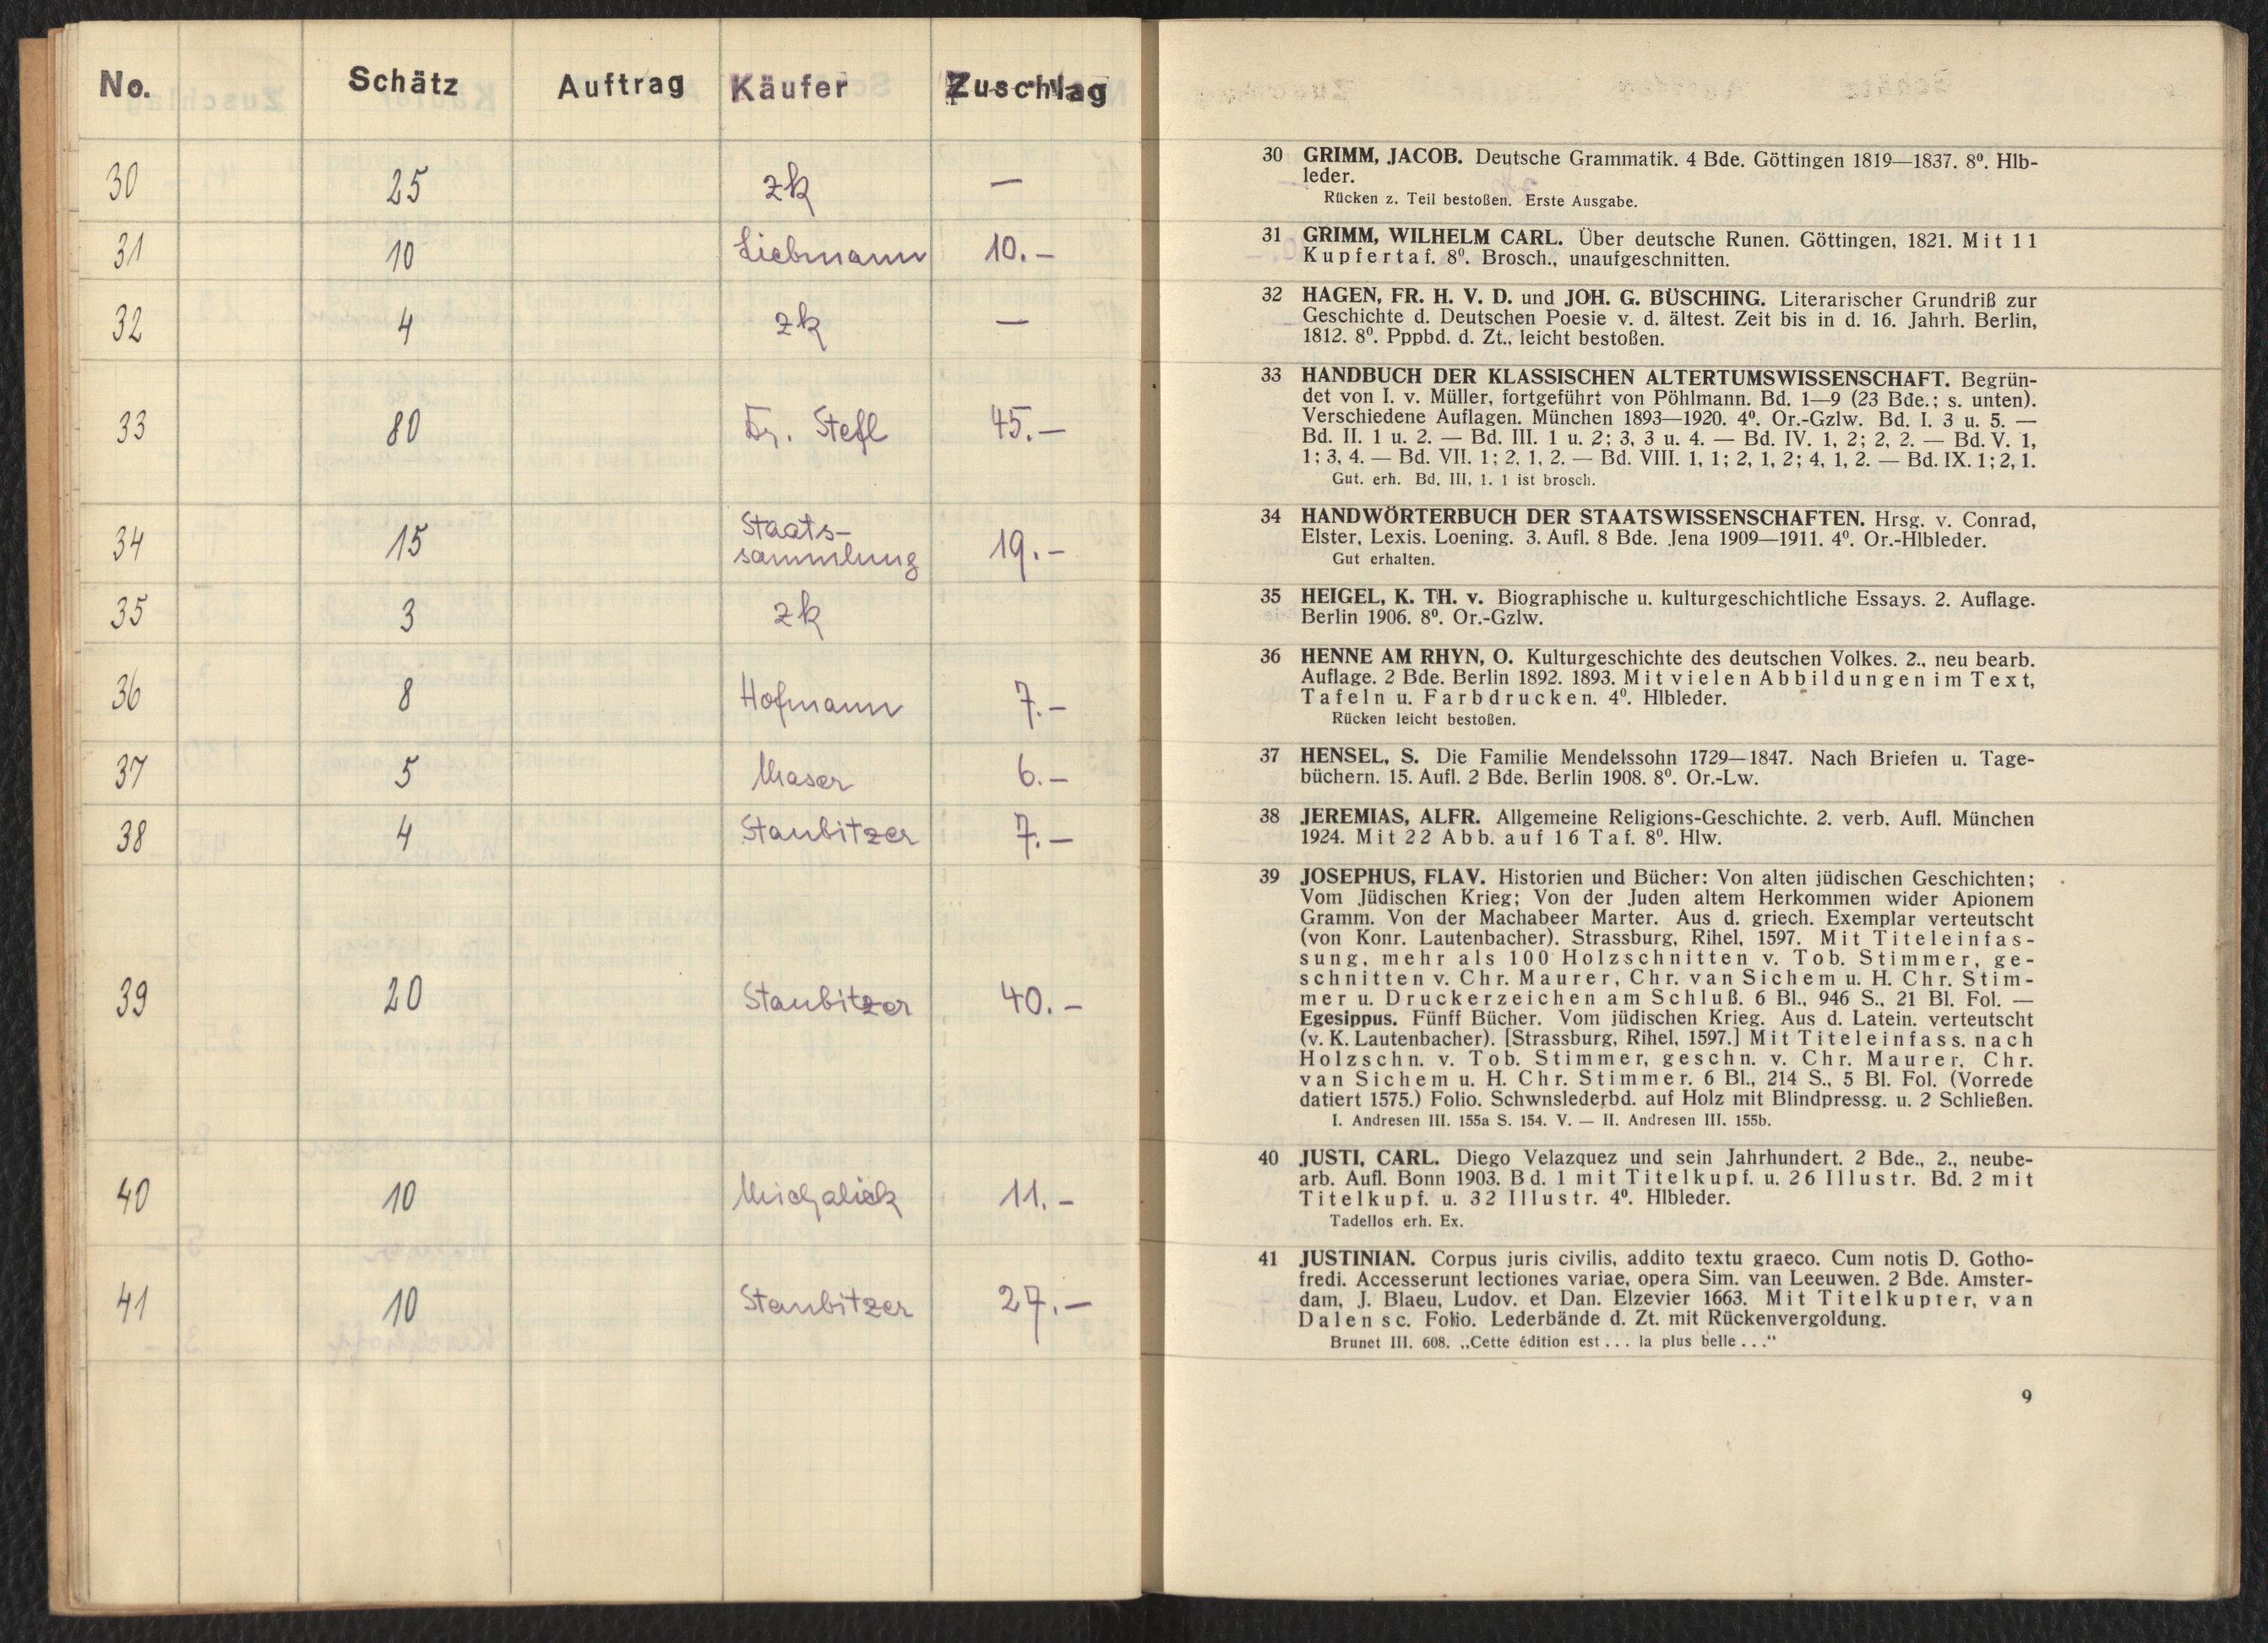 No. Schätz Auftrag Käufer Zuschlag
30 25 zk —
31 10 Liebmann 10.–
32 4 zk —
33 80 Dr. Stefl 45.–
34 15 Staats-
sammlung 19.–
35 3 zk
36 8 Hofmann 7.–
37 5 Maser 6.–
38 4 Staubitzer 7.–
39 20 Staubitzer 40.–
40 10 Michalick 11.–
41 10 Staubitzer 27.–
30 GRIMM, JACOB. Deutsche Grammatik. 4 Bde. Göttingen 1819—1837. 8⁰. Hlb-
leder.
Rücken z. Teil bestoßen. Erste Ausgabe.
31 GRIMM, WILHELM CARL. Über deutsche Runen. Göttingen, 1821. Mit 11
Kupfertaf. 8⁰. Brosch., unaufgeschnitten.
32 HAGEN, FR. H. V. D. und JOH. G. BÜSCHING. Literarischer Grundriß zur
Geschichte d. Deutschen Poesie v. d. ältest. Zeit bis in d. 16. Jahrh. Berlin,
1812. 8⁰. Pppbd. d. Zt., leicht bestoßen.
33 HANDBUCH DER KLASSISCHEN ALTERTUMSWISSENSCHAFT. Begrün-
det von I. v. Müller, fortgeführt von Pöhlmann. Bd. 1—9 (23 Bde.; s. unten).
Verschiedene Auflagen. München 1893—1920. 4⁰. Or.-Gzlw. Bd. I. 3 u. 5. —
Bd. II. 1 u. 2. — Bd. III. 1 u. 2; 3, 3 u. 4. — Bd. IV. 1, 2; 2, 2. — Bd. V. 1,
1; 3, 4. — Bd. VII. 1; 2, 1, 2. — Bd. VIII. 1, 1; 2, 1, 2; 4, 1, 2. — Bd. IX. 1; 2, 1.
Gut. erh. Bd. III, 1. 1 ist brosch.
34 HANDWÖRTERBUCH DER STAATSWISSENSCHAFTEN. Hrsg. v. Conrad,
Elster, Lexis. Loening. 3. Aufl. 8 Bde. Jena 1909—1911. 4⁰. Or.-Hlbleder.
Gut erhalten.
35 HEIGEL, K. TH. v. Biographische u. kulturgeschichtliche Essays. 2. Auflage.
Berlin 1906. 8⁰. Or.-Gzlw.
36 HENNE AM RHYN, O. Kulturgeschichte des deutschen Volkes. 2., neu bearb.
Auflage. 2 Bde. Berlin 1892. 1893. Mit vielen Abbildungen im Text,
Tafeln u. Farbdrucken. 4⁰. Hlbleder.
Rücken leicht bestoßen.
37 HENSEL, S. Die Familie Mendelssohn 1729—1847. Nach Briefen u. Tage-
büchern. 15. Aufl. 2 Bde. Berlin 1908. 8⁰. Or.-Lw.
38 JEREMIAS, ALFR. Allgemeine Religions-Geschichte. 2. verb. Aufl. München
1924. Mit 22 Abb. auf 16 Taf. 8⁰. Hlw.
39 JOSEPHUS, FLAV. Historien und Bücher: Von alten jüdischen Geschichten;
Vom Jüdischen Krieg; Von der Juden altem Herkommen wider Apionem
Gramm. Von der Machabeer Marter. Aus d. griech. Exemplar verteutscht
(von Konr. Lautenbacher). Strassburg, Rihel, 1597. Mit Titeleinfas-
sung, mehr als 100 Holzschnitten v. Tob. Stimmer, ge-
schnitten v. Chr. Maurer, Chr. van Sichem u. H. Chr. Stim-
mer u. Druckerzeichen am Schluß. 6 Bl., 946 S., 21 Bl. Fol. —
Egesippus. Fünff Bücher. Vom jüdischen Krieg. Aus d. Latein. verteutscht
(v. K. Lautenbacher). [Strassburg, Rihel, 1597.] Mit Titeleinfass. nach
Holzschn. v. Tob. Stimmer, geschn. v. Chr. Maurer, Chr.
van Sichem u. H. Chr. Stimmer. 6 Bl., 214 S., 5 Bl. Fol. (Vorrede
datiert 1575.) Folio. Schwnslederbd. auf Holz mit Blindpressg. u. 2 Schließen.
I. Andresen III. 155a S. 154. V. — II. Andresen III. 155b.
40 JUSTI, CARL. Diego Velazquez und sein Jahrhundert. 2 Bde., 2., neube-
arb. Aufl. Bonn 1903. Bd. 1 mit Titelkupf. u. 26 Illustr. Bd. 2 mit
Titelkupf. u. 32 Illustr. 4⁰. Hlbleder.
Tadellos erh. Ex.
41 JUSTINIAN. Corpus juris civilis, addito textu graeco. Cum notis D. Gotho-
fredi. Accesserunt lectiones variae, opera Sim. van Leeuwen. 2 Bde. Amster-
dam, J. Blaeu, Ludov. et Dan. Elzevier 1663. Mit Titelkupfer, van
Dalen sc. Folio. Lederbände d. Zt. mit Rückenvergoldung.
Brunet III. 608. „Cette édition est . . . la plus belle . . .“
9